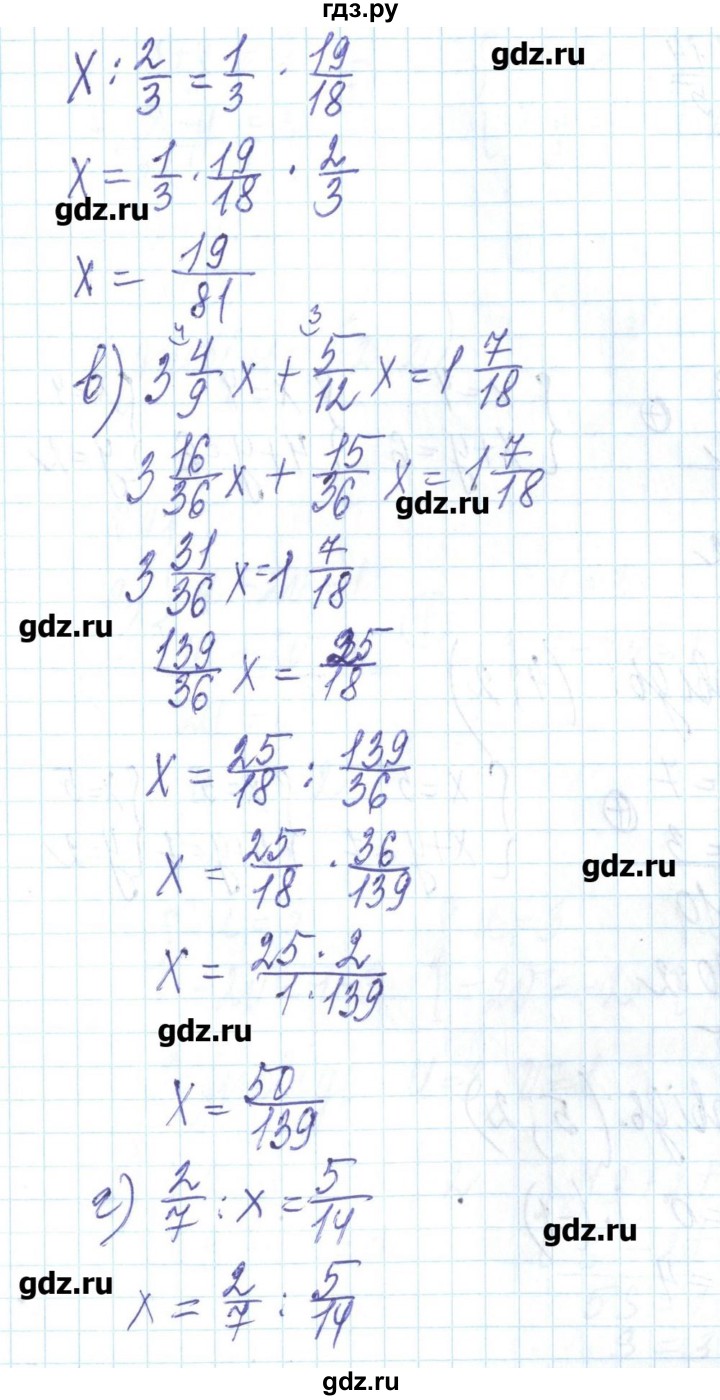 гдз.ру
x : 2/3 = 1/3 · 19/18
gdz.ru
x = 1/3 · 19/18 · 2/3
gdz.ru
x = 19/81
4 3
в) 3 4/9 x + 5/12 x = 1 7/18
3 16/36 x + 15/36 x = 1 7/18
gdz.ru
3 31/36 x = 1 7/18
gdz.ru
139/36 x = 25/18
x = 25/18 : 139/36
x = 25/18 · 36/139
gdz.ru
x = 25·2/1·139
gdz.ru
x = 50/139
г) 2/7 : x = 5/14
gdz.ru
gdz.ru
x = 2/7 : 5/14
gdz.ru